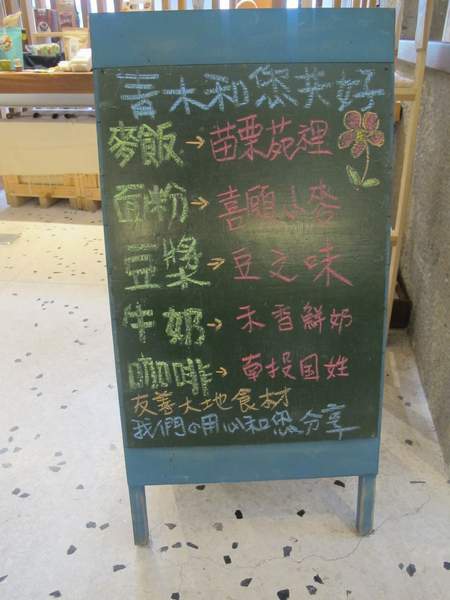 言木和您共好
麥飯→苗栗苑裡
面粉→喜願小麥
豆漿→豆之味
牛奶→禾香鮮奶
咖啡→南投国姓
友善大地食材
我們用心和您分享